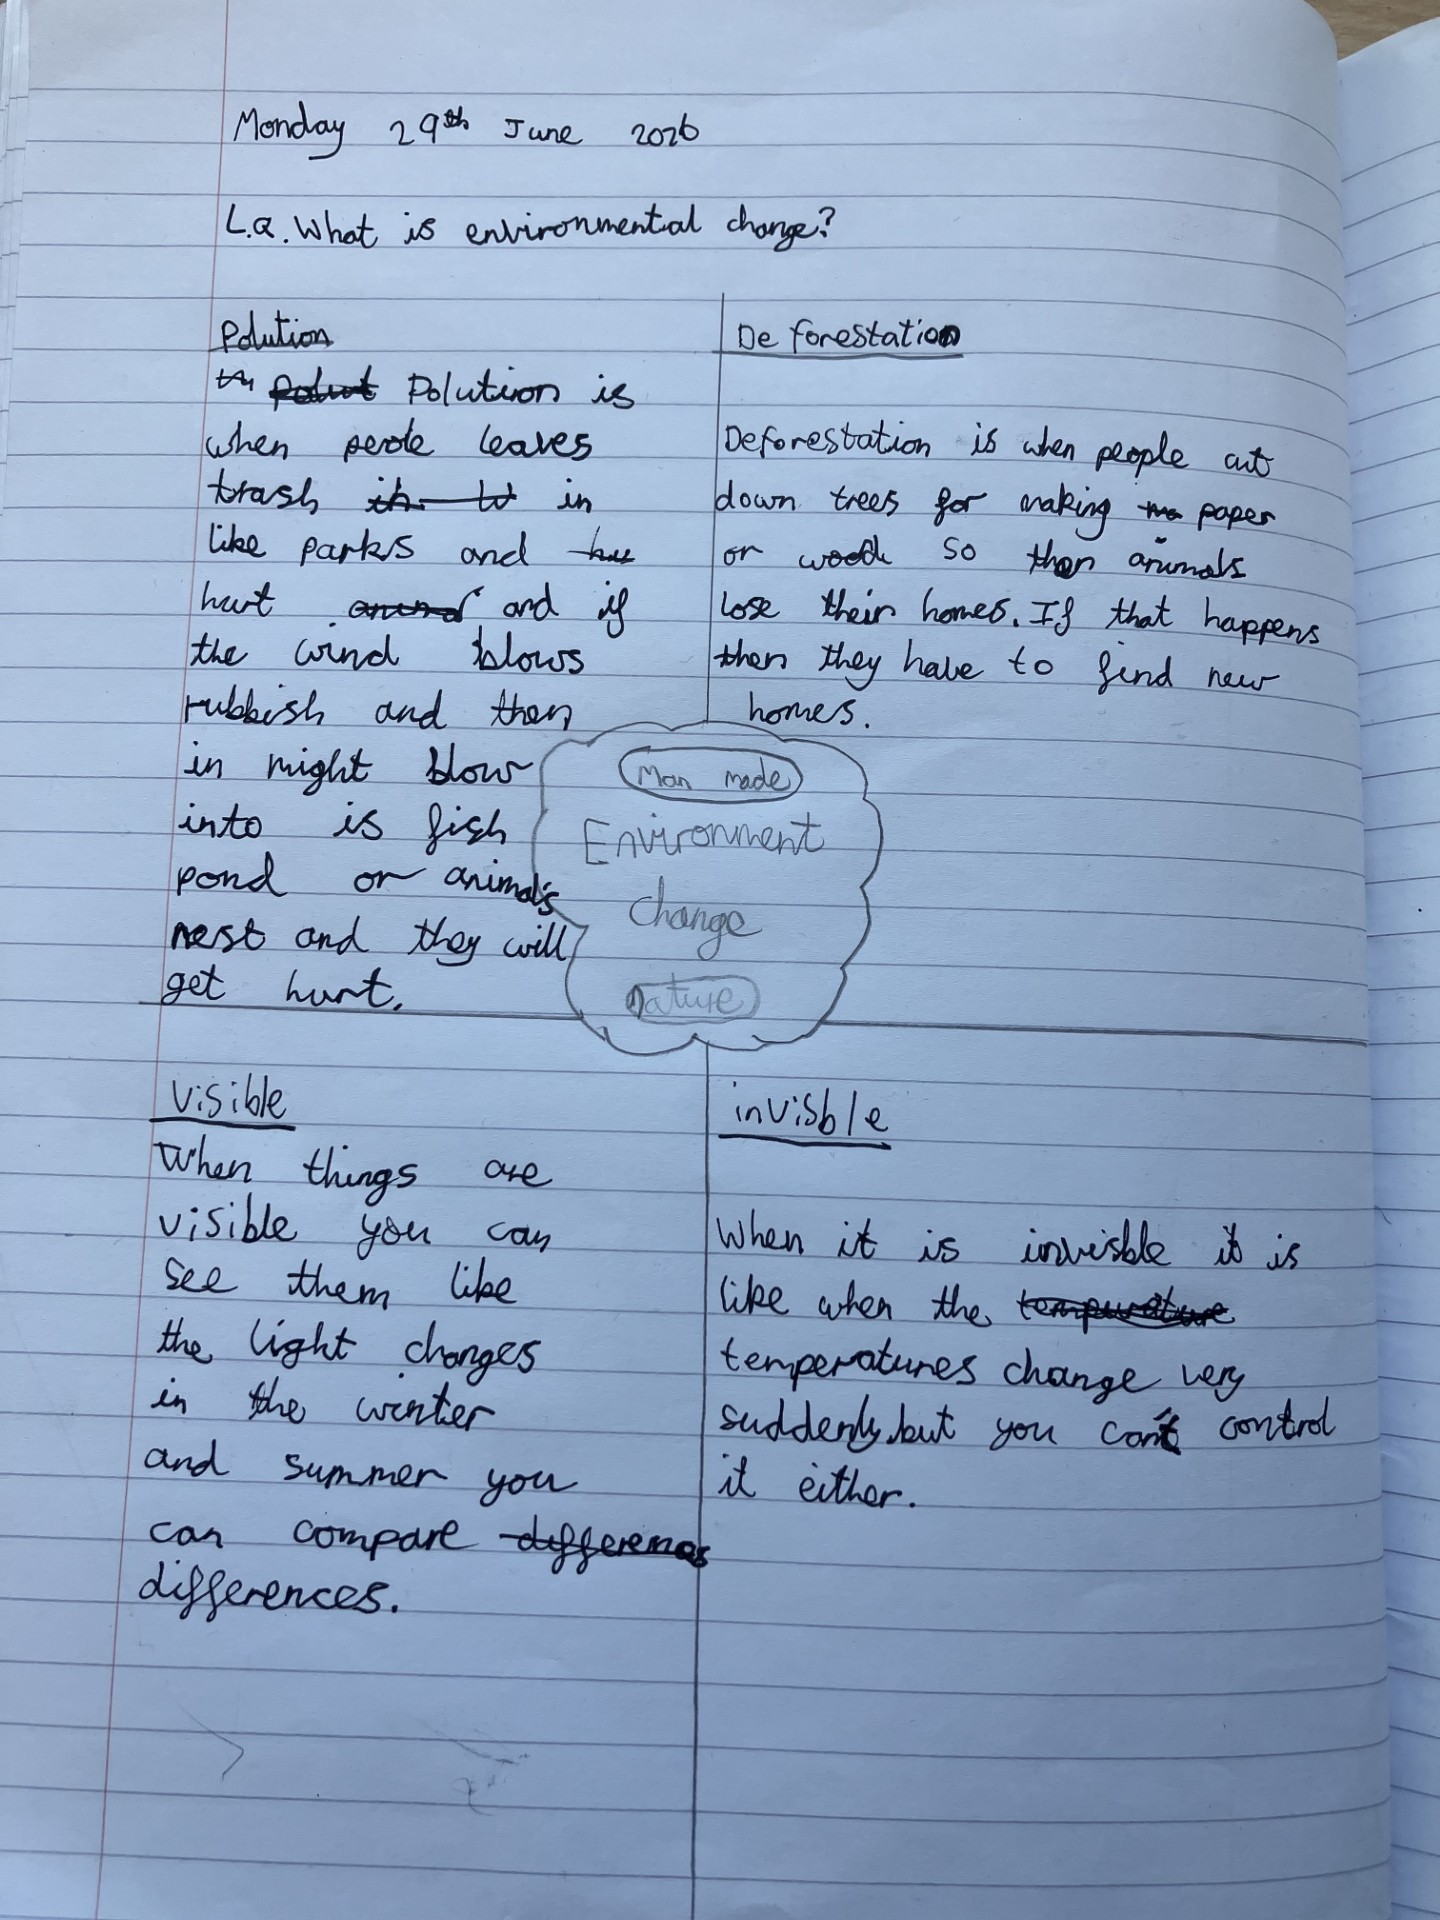 Monday 29th June 2026
L.Q. What is environmental change?
Polution
Polution is
when peole leaves
trash in
like parks and
hurt and if
the wind blows
rubbish and then
in might blow
into is fish
pond or animals
nest and they will
get hurt.
Deforestation
Deforestation is when people cut
down trees for making paper
or wood so then animals
lose their homes. If that happens
then they have to find new
homes.
Man made
Environment
change
nature
Visible
When things are
visible you can
see them like
the light changes
in the winter
and summer you
can compare
differences.
invisble
When it is invisble it is
like when the
temperatures change very
suddenly but you can't control
it either.